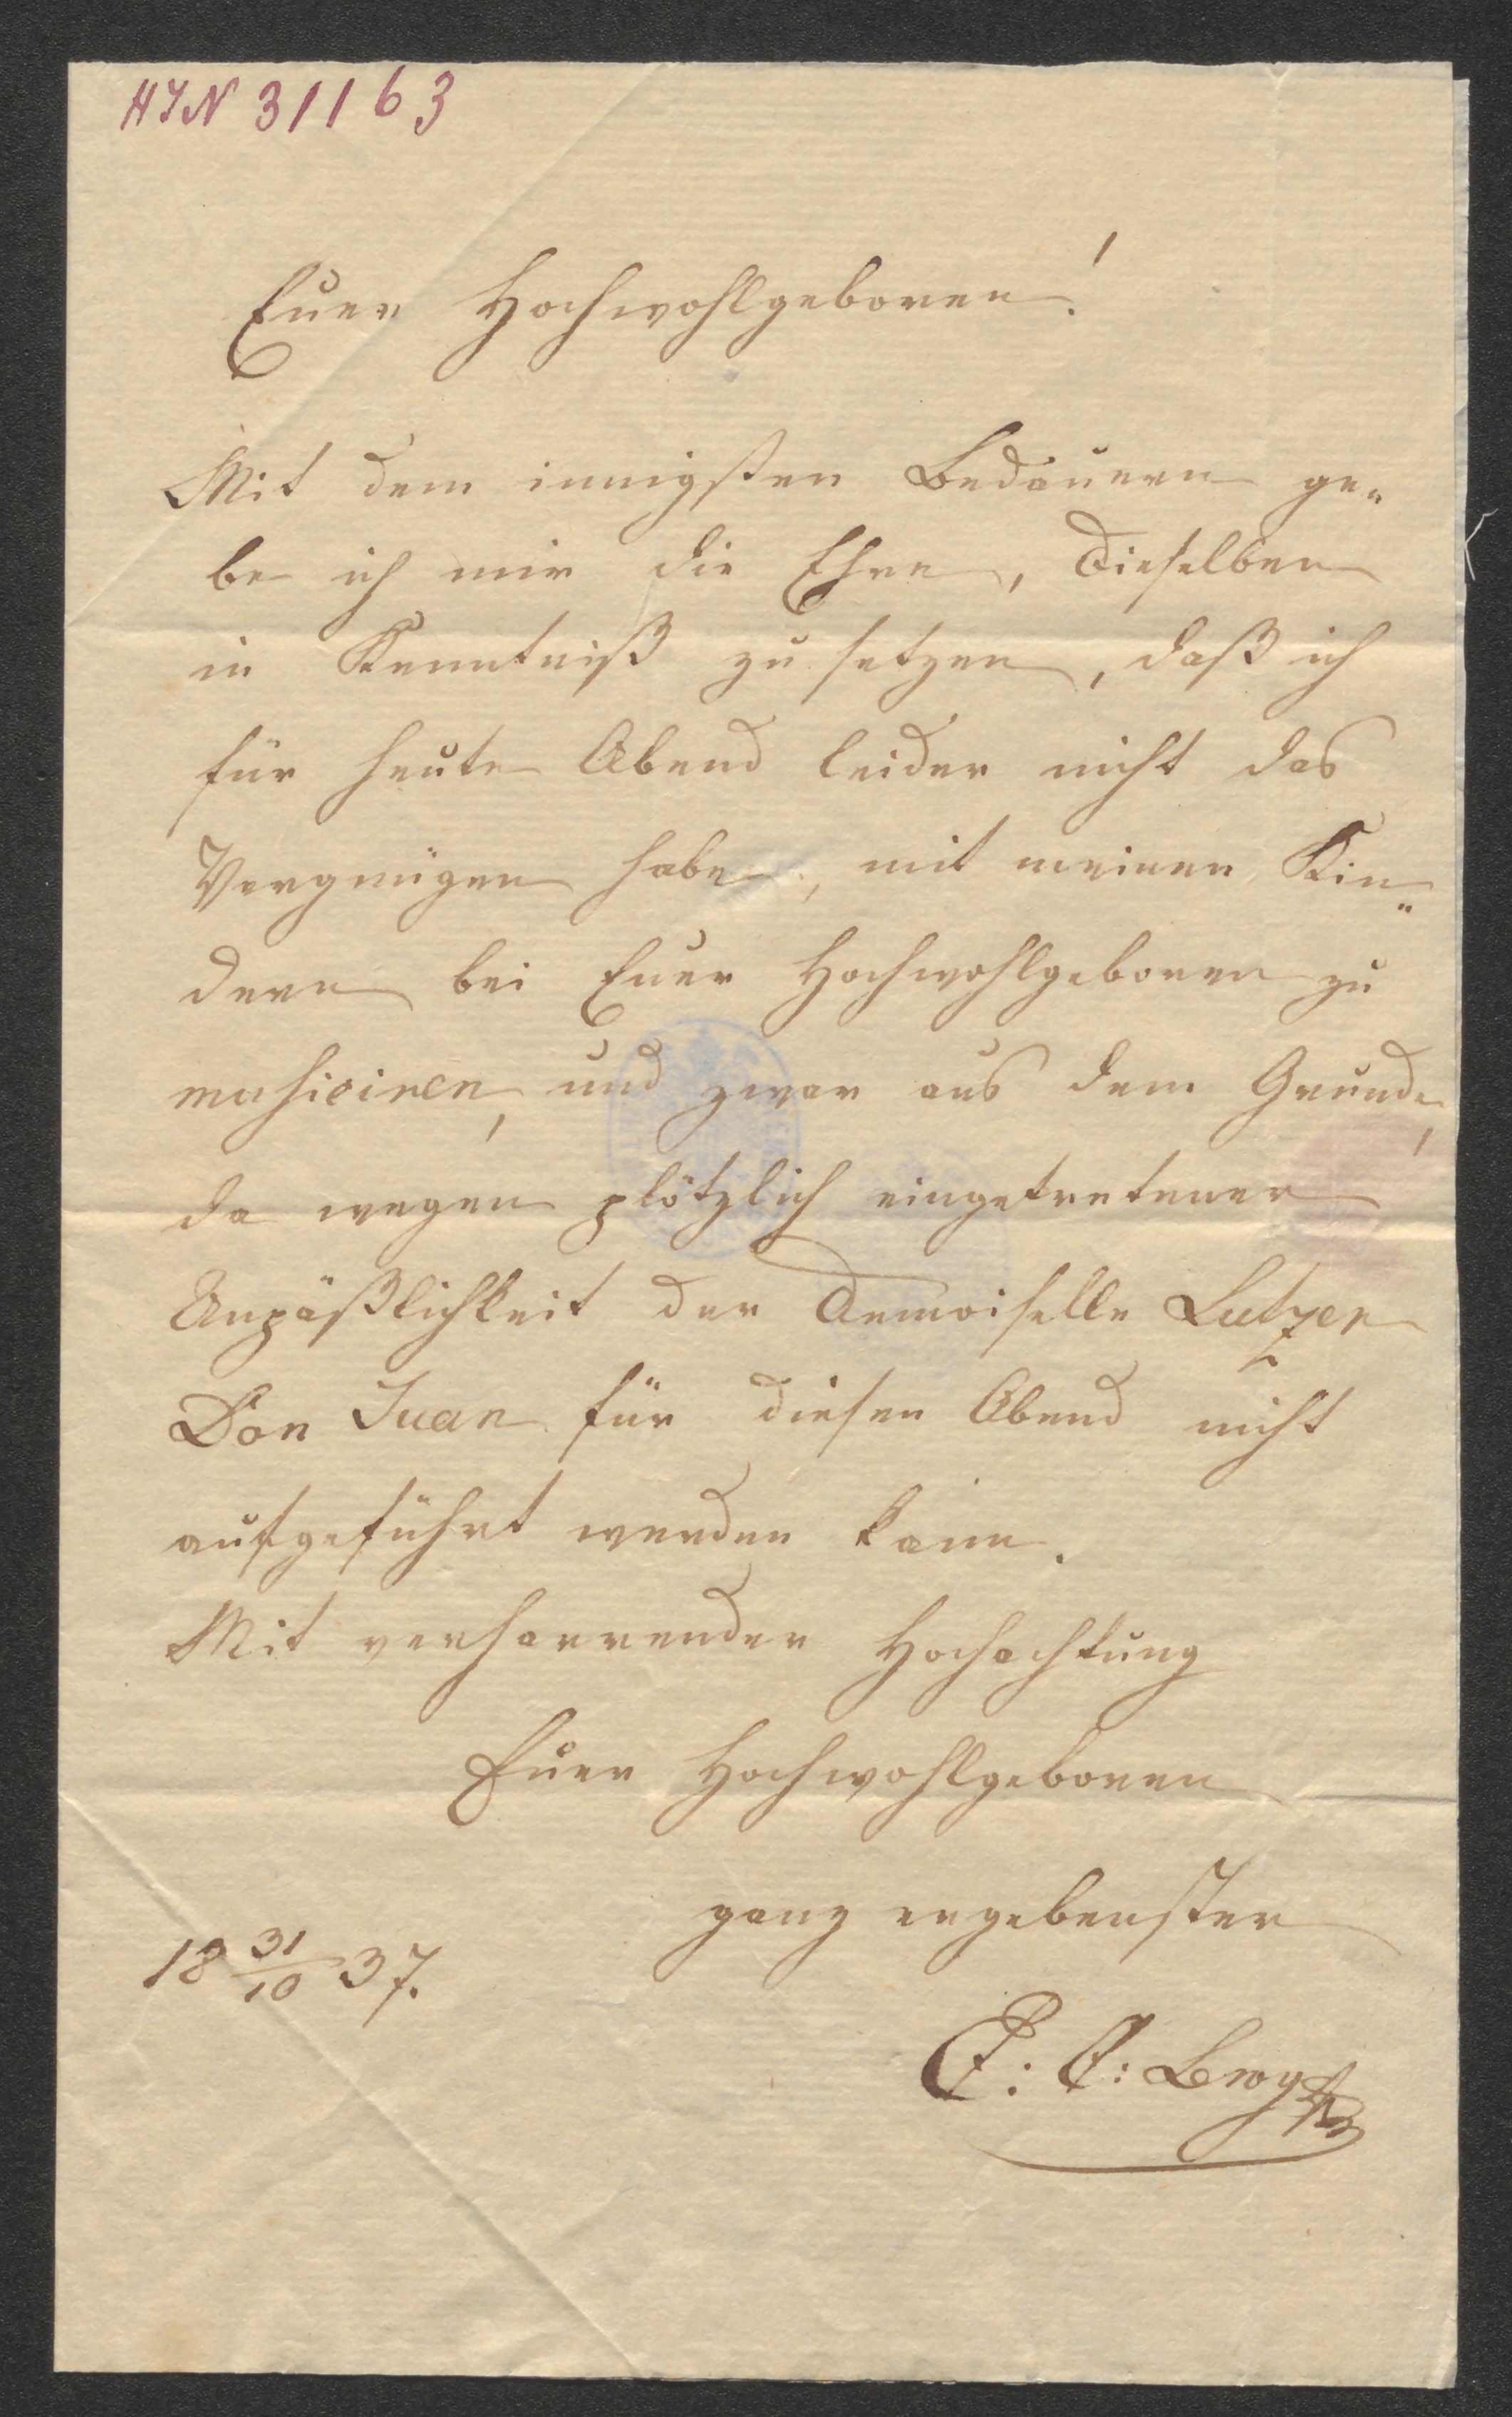 HIN 31163
Euer Hochwohlgeboren!
Mit dem innigsten Bedauern ge„
be ich mir die Ehre, Dieselben
in Kenntniß zu setzen, daß ich
für heute Abend leider nicht das
Vergnügen habe, mit meinen Kin„
dern bei Euer Hochwohlgeboren zu
musiciren, und zwar aus dem Grunde,
da wegen plötzlich eingetretener
Unpäßlichkeit der Demoiselle Lutzer
Don Juan für diesen Abend nicht
aufgeführt werden kann.
Mit verharrender Hochachtung
Euer Hochwohlgeboren
ganz ergebenster
18 31/10 37.